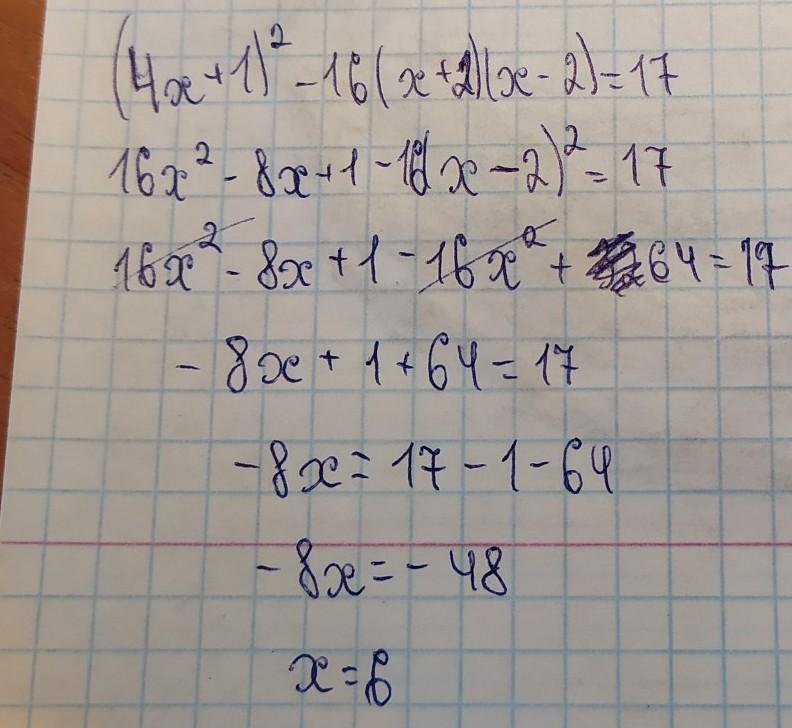 (4x+1)² - 16(x+2)(x-2)=17
16x² - 8x+1 - 16(x-2)² = 17
16x² - 8x + 1 - 16x² + 64 = 17
- 8x + 1 + 64 = 17
-8x = 17 - 1 - 64
- 8x = - 48
x = 6